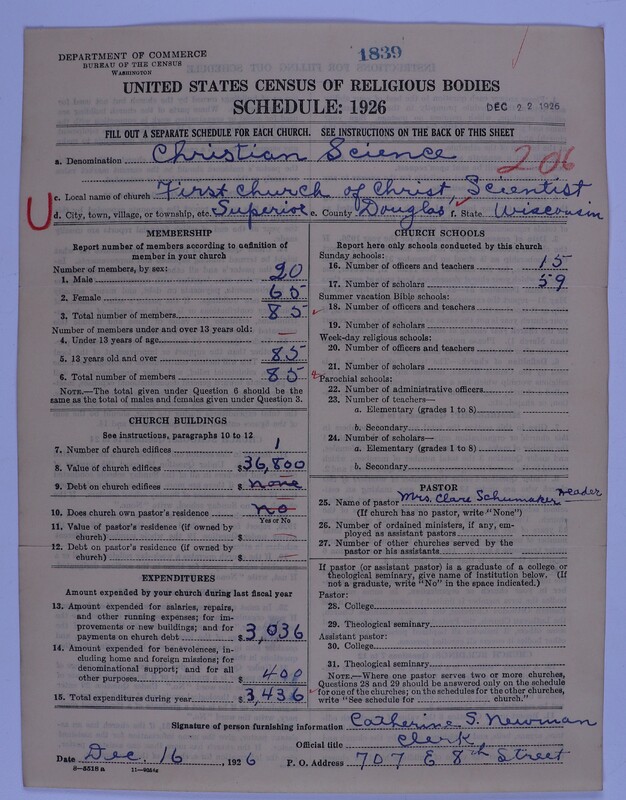 1839
DEPARTMENT OF COMMERCE
BUREAU OF THE CENSUS
WASHINGTON
UNITED STATES CENSUS OF RELIGIOUS BODIES
SCHEDULE: 1926
DEC 22 1926
FILL OUT A SEPARATE SCHEDULE FOR EACH CHURCH. SEE INSTRUCTIONS ON THE BACK OF THIS SHEET
a. Denomination Christian Science
206
c. Local name of church First Church of Christ Scientist
U
d. City, town, village, or township, etc. Superior e. County Douglas f. State Wisconsin
MEMBERSHIP
Report number of members according to definition of
member in your church
Number of members, by sex:
1. Male 20
2. Female 65
3. Total number of members 85
Number of members under and over 13 years old:
4. Under 13 years of age —
5. 13 years old and over 85
6. Total number of members 85
NOTE.—The total given under Question 6 should be the
same as the total of males and females given under Question 3.
CHURCH BUILDINGS
See instructions, paragraphs 10 to 12
7. Number of church edifices 1
8. Value of church edifices $36,800
9. Debt on church edifices $ none
10. Does church own pastor's residence no
Yes or No
11. Value of pastor's residence (if owned by
church) $ —
12. Debt on pastor's residence (if owned by
church) $ —
EXPENDITURES
Amount expended by your church during last fiscal year
13. Amount expended for salaries, repairs,
and other running expenses; for im-
provements or new buildings; and for
payments on church debt $3,036
14. Amount expended for benevolences, in-
cluding home and foreign missions; for
denominational support; and for all
other purposes $ 400
15. Total expenditures during year $3,436
CHURCH SCHOOLS
Report here only schools conducted by this church
Sunday schools:
16. Number of officers and teachers 15
17. Number of scholars 59
Summer vacation Bible schools:
18. Number of officers and teachers
19. Number of scholars
Week-day religious schools:
20. Number of officers and teachers
21. Number of scholars
Parochial schools:
22. Number of administrative officers
23. Number of teachers—
a. Elementary (grades 1 to 8)
b. Secondary
24. Number of scholars—
a. Elementary (grades 1 to 8)
b. Secondary
PASTOR
25. Name of pastor Mrs. Clare Schumaker reader
(If church has no pastor, write "None")
26. Number of ordained ministers, if any, em-
ployed as assistant pastors
27. Number of other churches served by the
pastor or his assistants
If pastor (or assistant pastor) is a graduate of a college or
theological seminary, give name of institution below. (If
not a graduate, write "No" in the space indicated.)
Pastor:
28. College
29. Theological seminary
Assistant pastor:
30. College
31. Theological seminary
NOTE.—Where one pastor serves two or more churches,
Questions 28 and 29 should be answered only on the schedule
for one of the churches; on the schedules for the other churches,
write "See schedule for church."
Signature of person furnishing information Catherine S. Newman
Official title Clerk
Date Dec. 16, 1926 P. O. Address 707 E 8th Street
8—5518 a